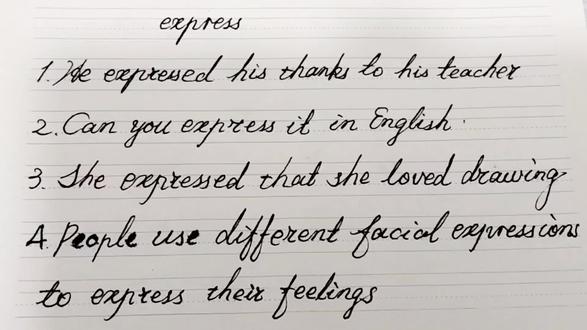 express
1. He expressed his thanks to his teacher
2. Can you express it in English.
3. She expressed that she loved drawing
4. People use different facial expressions
to express their feelings